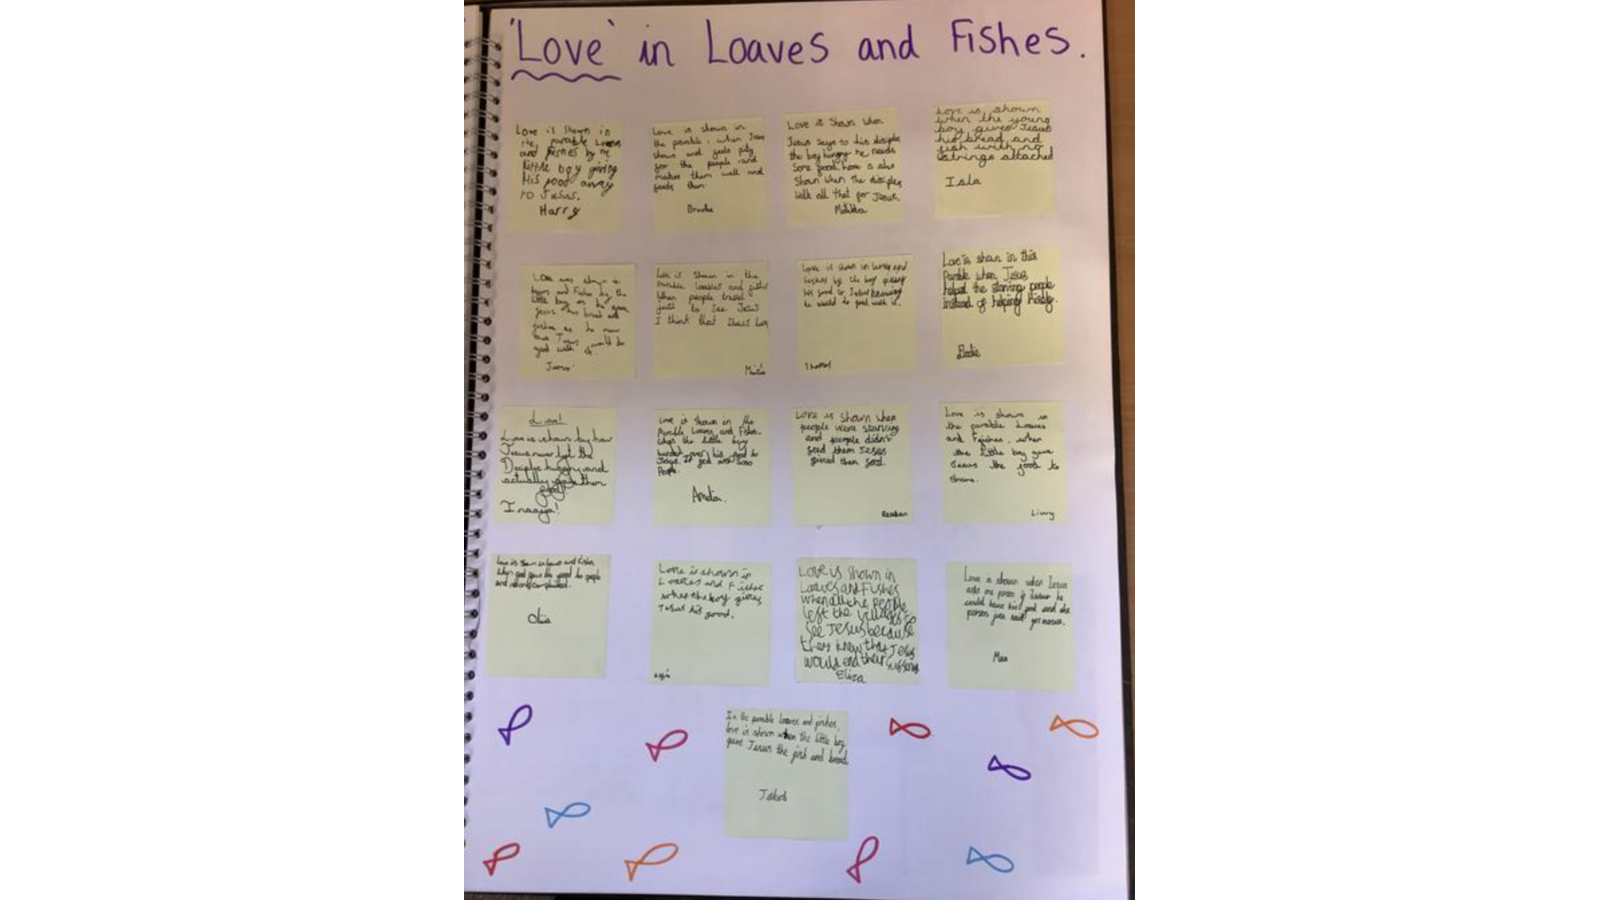 'Love' in Loaves and Fishes.
Love is shown in
the parable Loaves
and Fishes by the
little boy giving
His food away
to Jesus.
Harry
Love is shown in
the parable, when Jesus
shows and feels pity
for the people and
makes them well and
feeds them.
Love is shown when
Jesus says to his disciple
the boy hungry he needs
some food, love is also
shown when the disciples
walk all that for Jesus.
Love is shown
when the young
boy gives Jesus
his bread and
fish with no
strings attached
Isla
Love
little boy as he gave
Jesus his bread and
fishes as he
Jesus would do
good with it.
Love is shown in the
parable loaves and fishes
When people travel
just to see Jesus
I think that shows love
Love is shown in loaves and
fishes by the boy giving
his food to Jesus knowing
he would do good with it.
Thomas
Love is shown in this
Parable when Jesus
helped the starving people
instead of helping himself.
Love!
Love is shown by how
Jesus never let the
Disciples hungry and
actually gave them
food.
Inaaya!
Love is shown in the
Parable Loaves and Fishes.
When the little boy
handed over his food to
Jesus. It fed over 5000
People.
Love is shown when
people were starving
and people didn't
feed them Jesus
food.
Reuben
Love is shown in
the parable Loaves
and Fishes, when
the little boy gave
Jesus the food to
share.
Livvy
Love is shown in loaves and fishes
when god gave the food to people
and
Olivia
Love is shown in
Loaves and Fishes
when the boy gives
Jesus his food.
Love is shown in
Loaves and Fishes
when all the people
left the villages to
see Jesus because
they knew that Jesus
would end their suffering
Eliza
Love is shown when Jesus
asks one person if Jesus he
could have his food and the
person just said yes
Max
In the parable loaves and fishes,
love is shown when the little boy
gave Jesus the fish and bread.
Jakob